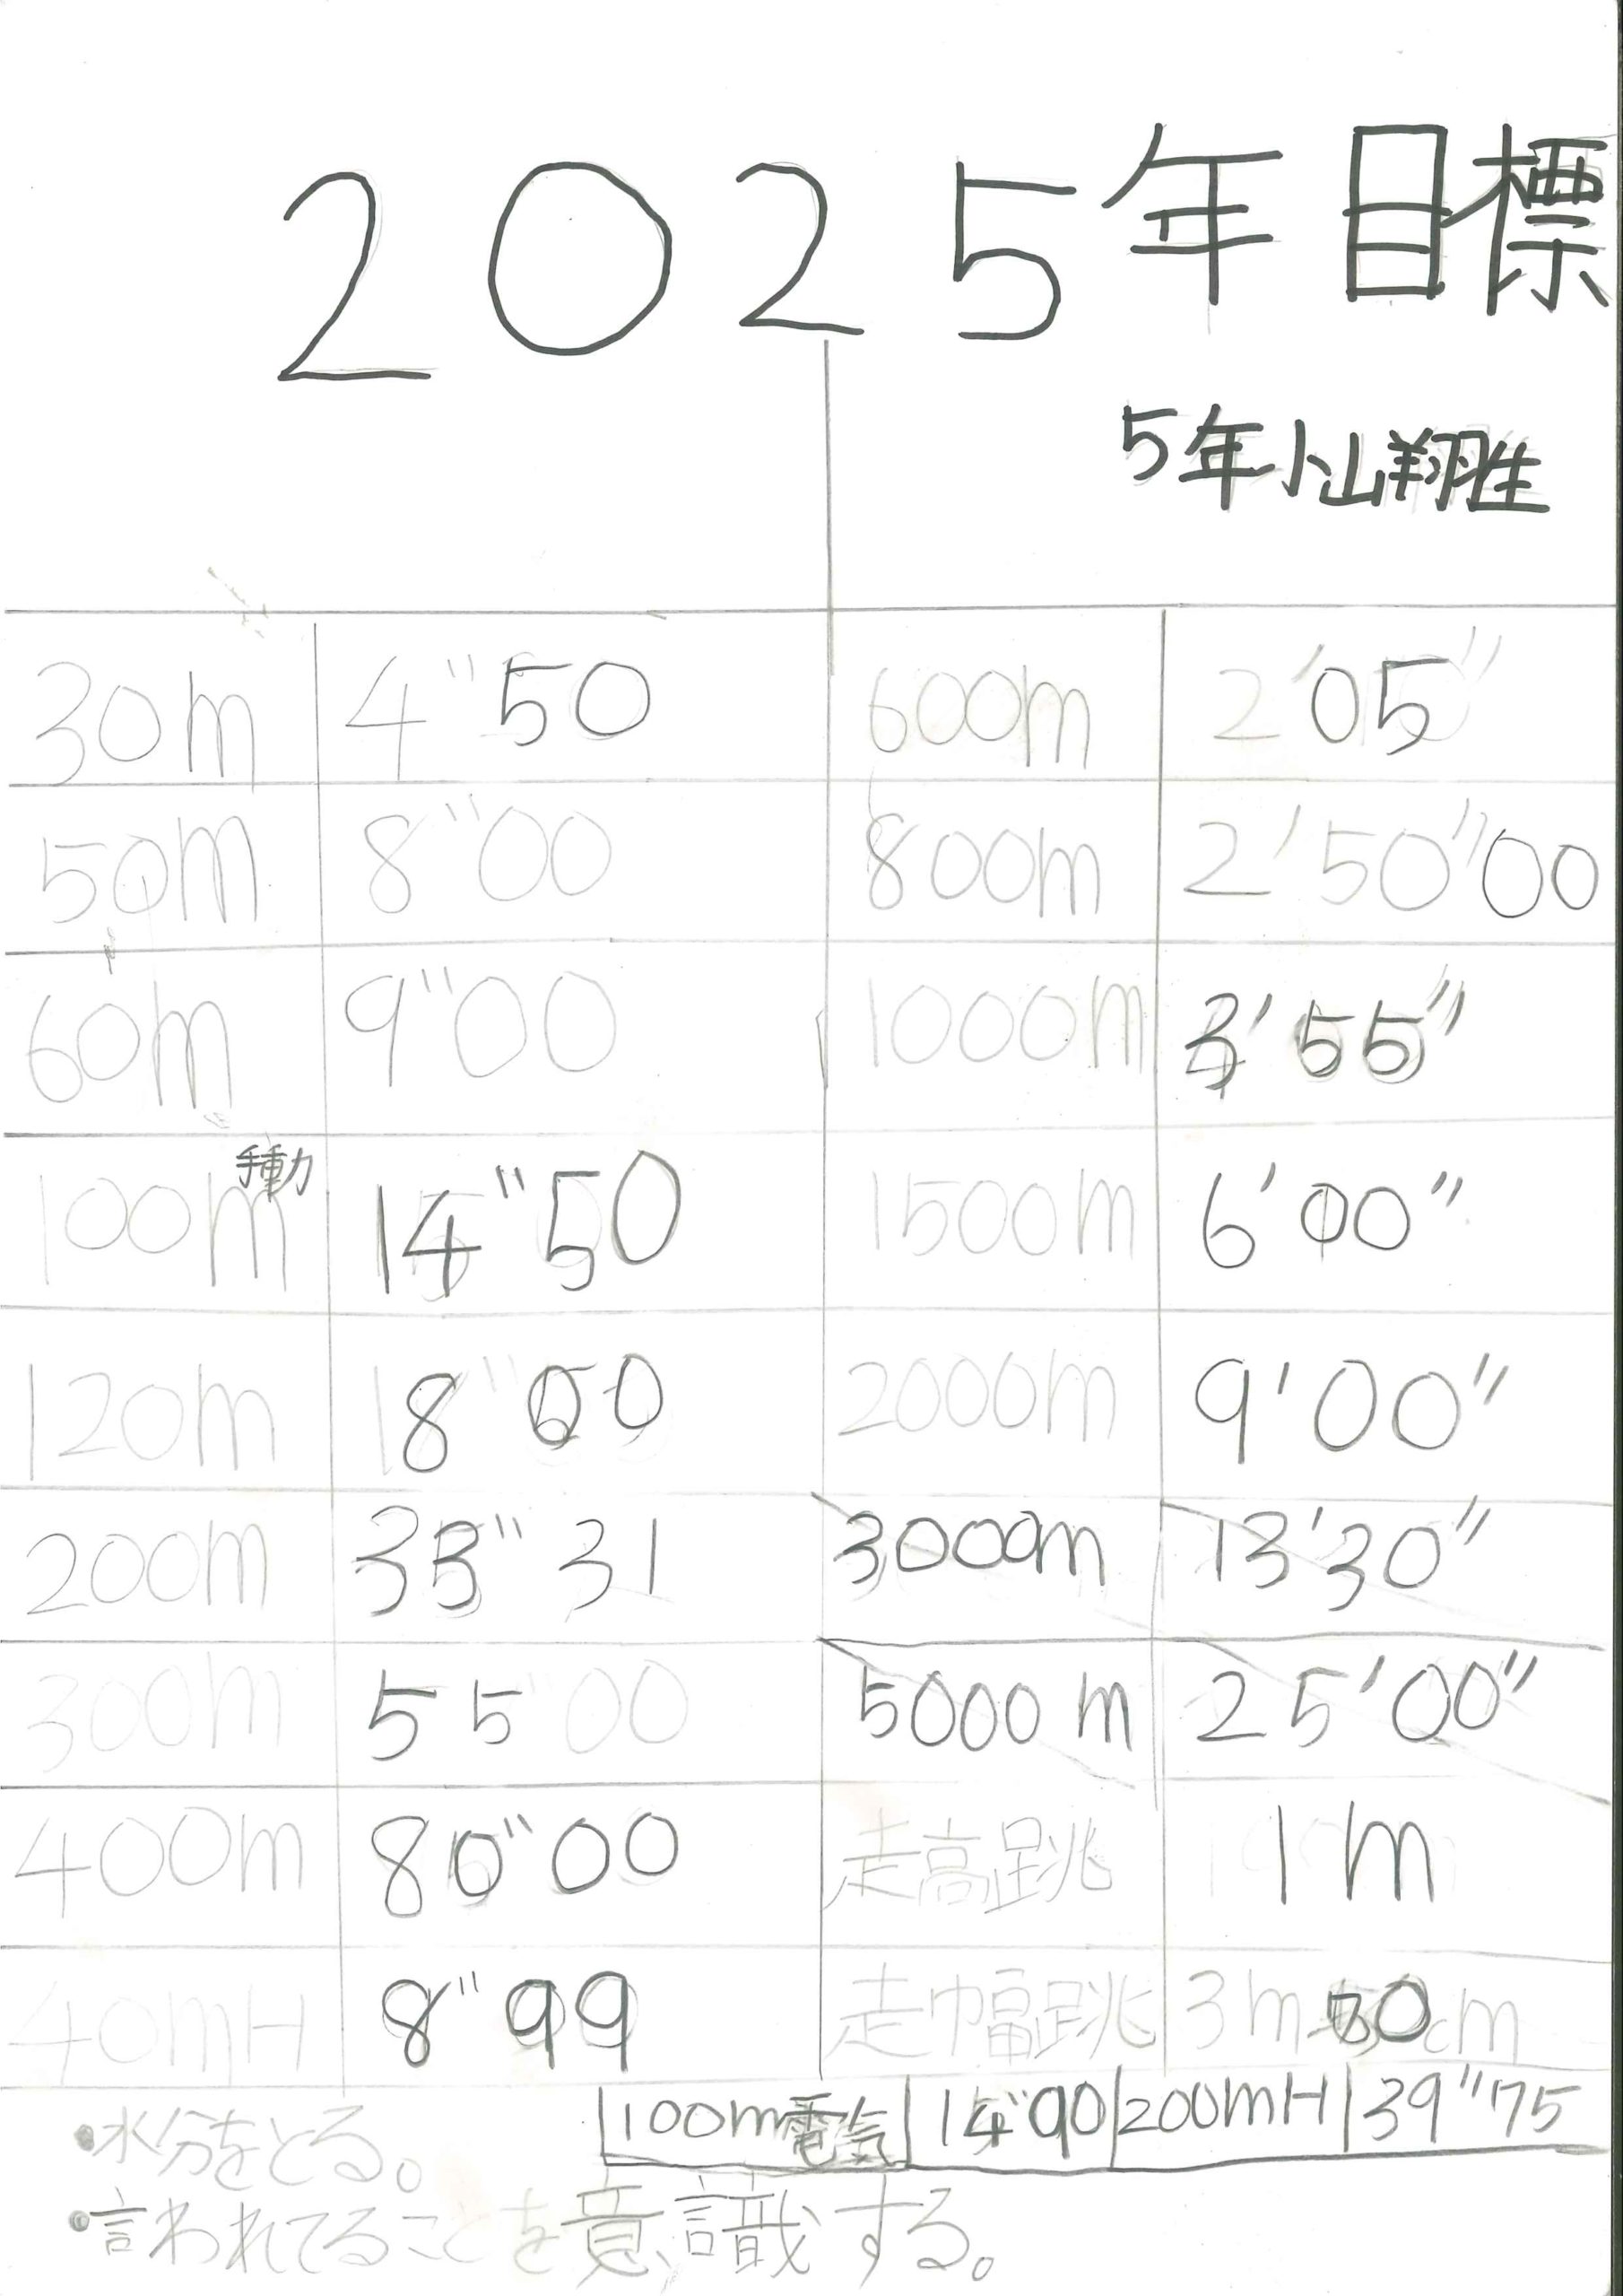 2025年目標
5年小山翔生
30m 4"50 600m 2'05"
50m 8"00 800m 2'50"00
60m 9"00 1000m 3'55"
100m手動 14"50 1500m 6'00"
120m 18"00 2000m 9'00"
200m 33"31 3000m 13'30"
300m 55 00 5000m 25'00"
400m 80"00 走高跳 1m
40mH 8"99 走幅跳 3m 60cm
100m電気 14"90 200mH 39"75
•水分をとる。
•言われてることを意識する。